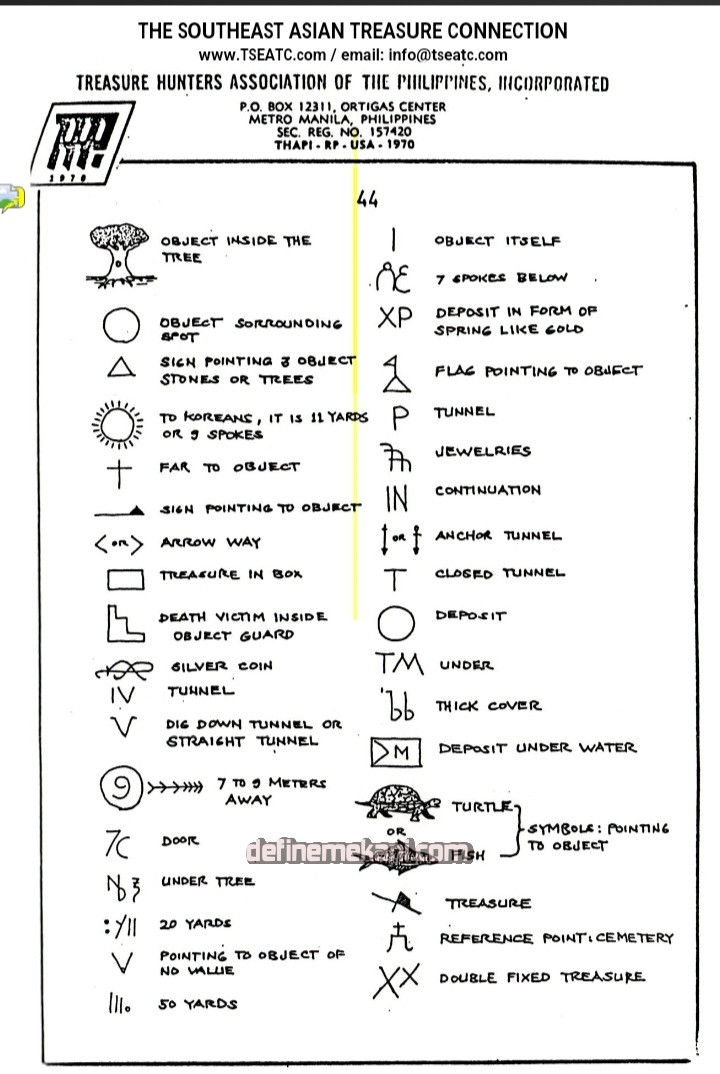 THE SOUTHEAST ASIAN TREASURE CONNECTION
www.TSEATC.com / email: info@tseatc.com
TREASURE HUNTERS ASSOCIATION OF THE PHILIPPINES, INCORPORATED
P.O. BOX 12311, ORTIGAS CENTER
METRO MANILA, PHILIPPINES
SEC. REG. NO. 157420
THAPI - RP - USA - 1970
1970
44
OBJECT INSIDE THE
TREE
OBJECT SORROUNDING
SPOT
SIGN POINTING 3 OBJECT
STONES OR TREES
TO KOREANS, IT IS 11 YARDS
OR 9 SPOKES
FAR TO OBJECT
SIGN POINTING TO OBJECT
< OR > ARROW WAY
TREASURE IN BOX
DEATH VICTIM INSIDE
OBJECT GUARD
SILVER COIN
IV TUNNEL
V DIG DOWN TUNNEL OR
STRAIGHT TUNNEL
9 7 TO 9 METERS
AWAY
7C DOOR
UNDER TREE
:Y11 20 YARDS
V POINTING TO OBJECT OF
NO VALUE
111. 50 YARDS
| OBJECT ITSELF
7 SPOKES BELOW
XP DEPOSIT IN FORM OF
SPRING LIKE GOLD
FLAG POINTING TO OBJECT
P TUNNEL
JEWELRIES
IN CONTINUATION
OR ANCHOR TUNNEL
T CLOSED TUNNEL
DEPOSIT
TM UNDER
'bb THICK COVER
>M DEPOSIT UNDER WATER
TURTLE
OR
FISH
SYMBOLS: POINTING
TO OBJECT
TREASURE
REFERENCE POINT: CEMETERY
XX DOUBLE FIXED TREASURE